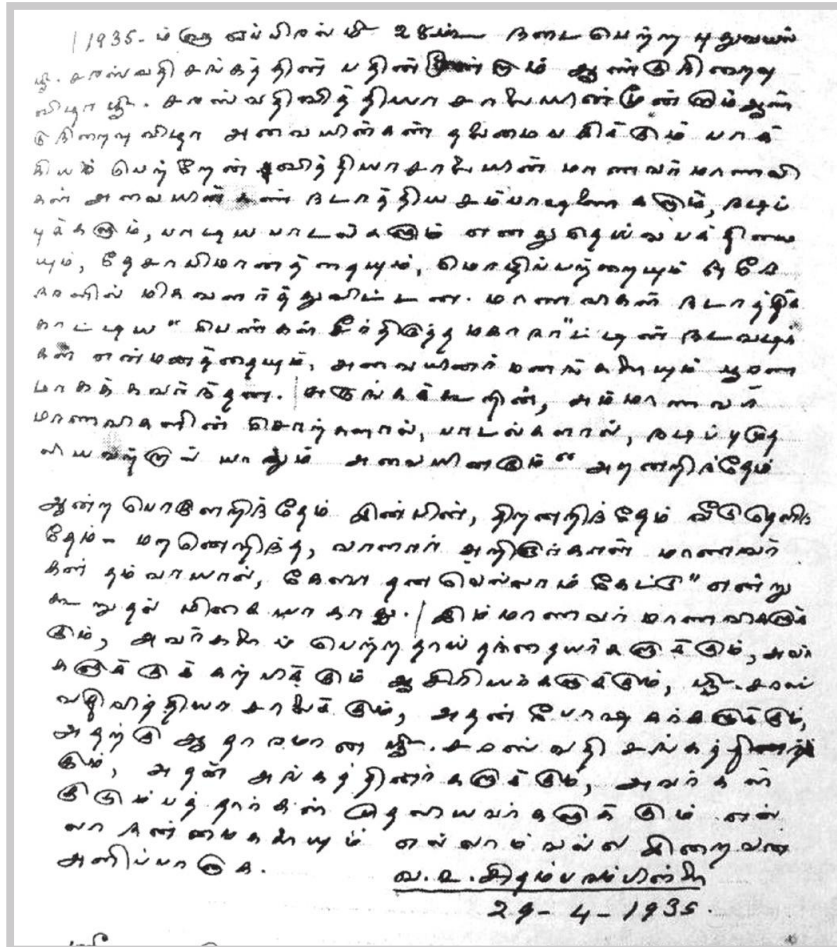 1935-ம்௵ ஏப்பிரல்௴ 28உ நடைபெற்ற புதுவயல்
ஸ்ரீ. சரஸ்வதி சங்கத்தின் பதின் மூன்றாம் ஆண்டு நிறைவு
விழா ஸ்ரீ. சரஸ்வதிவித்தியா சாலையின் மூன்றாம் ஆண்
டு நிறைவு விழா அவையின்கண் தலைமை வகிக்கும் பாக்
கியம் பெற்றேன். வித்தியாசாலையின் மாணவர் மாணவி
கள் அவையின்கண் நடாத்திய சம்பாஷணைகளும், நடிப்
புக்களும், பாடிய பாடல்களும் எனது தெய்வபக்தியை
யும், தேசாபிமானத்தையும், மொழிப்பற்றையும் ஒரே
நாளில் மிக வளர்த்துவிட்டன. மாணவிகள் நடாத்திக்
காட்டிய "பெண்கள் சீர்திருத்த மகாநாட்"டின் நடவடிக்
கள் என்மனத்தையும், அவையினர் மனங்களையும் பூரண
மாகக்கவர்ந்தன. சுருங்கக்கூறின், அம்மாணவர்
மாணவிகளின் சொற்களால், பாடல்களால், நடிப்பு முத
லியவற்றால் யாமும் அவையினரும் "அறனறிந்தேம்
ஆன்ற பொருளறிந்தேம் இன்பின், திறனறிந்தேம் வீடுதெளிந்
தேம்- மறனெறிந்த, வாளார் அறிஞர்காள் மாணவர்
கள் தம்வாயால், கேளா தனவெல்லாம் கேட்டு" என்று
கூறுதல் மிகையாகாது. இம்மாணவர் மாணவிகளுக்
கும், அவர்களைப் பெற்ற தாய் தந்தையர்களுக்கும், அவர்
களுக்குக் கற்பிக்கும் ஆசிரியர்களுக்கும், ஸ்ரீ. சரஸ்
வதிவித்தியா சாலைக்கும், அதன் போஷகர்களுக்கும்,
அதற்கு ஆதாரமான ஸ்ரீ. சரஸ்வதி சங்கத்தினர்க்
கும், அதன் அங்கத்தினர்களுக்கும், அவர்கள்
குடும்பத்தார்கள் முதலியவர்களுக்கும் எல்
லா நன்மைகளையும் எல்லாம்வல்ல இறைவன்
அளிப்பாராக.
வ. உ. சிதம்பரம்பிள்ளை
29-4-1935.